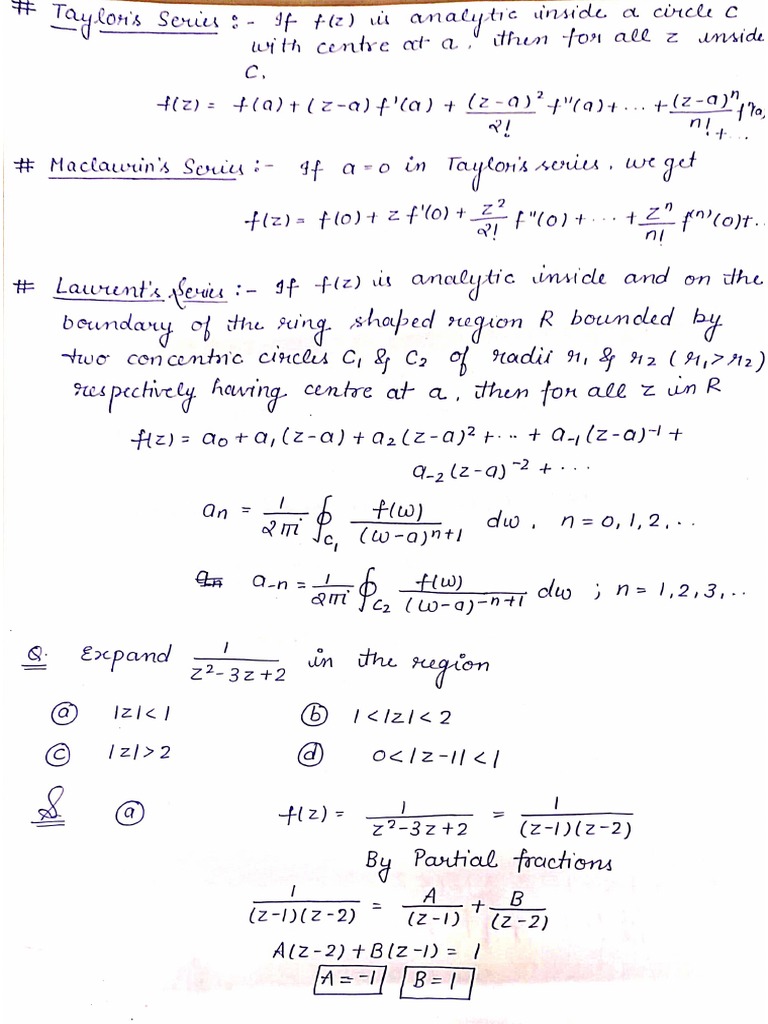 # Taylor's Series :- If f(z) is analytic inside a circle C
with centre at a, then for all z inside
C.
f(z) = f(a) + (z-a) f'(a) + (z-a)²/2! f''(a) + ... + (z-a)ⁿ/n! fⁿ(a)
+ ...
# Maclaurin's Series :- If a=0 in Taylor's series, we get
f(z) = f(0) + z f'(0) + z²/2! f''(0) + ... + zⁿ/n! f⁽ⁿ⁾(0) + ..
# Laurent's Series :- If f(z) is analytic inside and on the
boundary of the ring shaped region R bounded by
two concentric circles C₁ & C₂ of radii r₁ & r₂ (r₁>r₂)
respectively having centre at a, then for all z in R
f(z) = a₀ + a₁(z-a) + a₂(z-a)² + ... + a₋₁(z-a)⁻¹ +
a₋₂(z-a)⁻² + ...
aₙ = 1/2πi ∮_C₁ f(w)/(w-a)ⁿ⁺¹ dw, n = 0,1,2,..
a₋ₙ = 1/2πi ∮_C₂ f(w)/(w-a)⁻ⁿ⁺¹ dw ; n = 1,2,3,..
Q. Expand 1/(z²-3z+2) in the region
(a) |z|<1 (b) 1<|z|<2
(c) |z|>2 (d) 0<|z-1|<1
S. (a) f(z) = 1/(z²-3z+2) = 1/((z-1)(z-2))
By Partial fractions
1/((z-1)(z-2)) = A/(z-1) + B/(z-2)
A(z-2) + B(z-1) = 1
A=-1 B=1